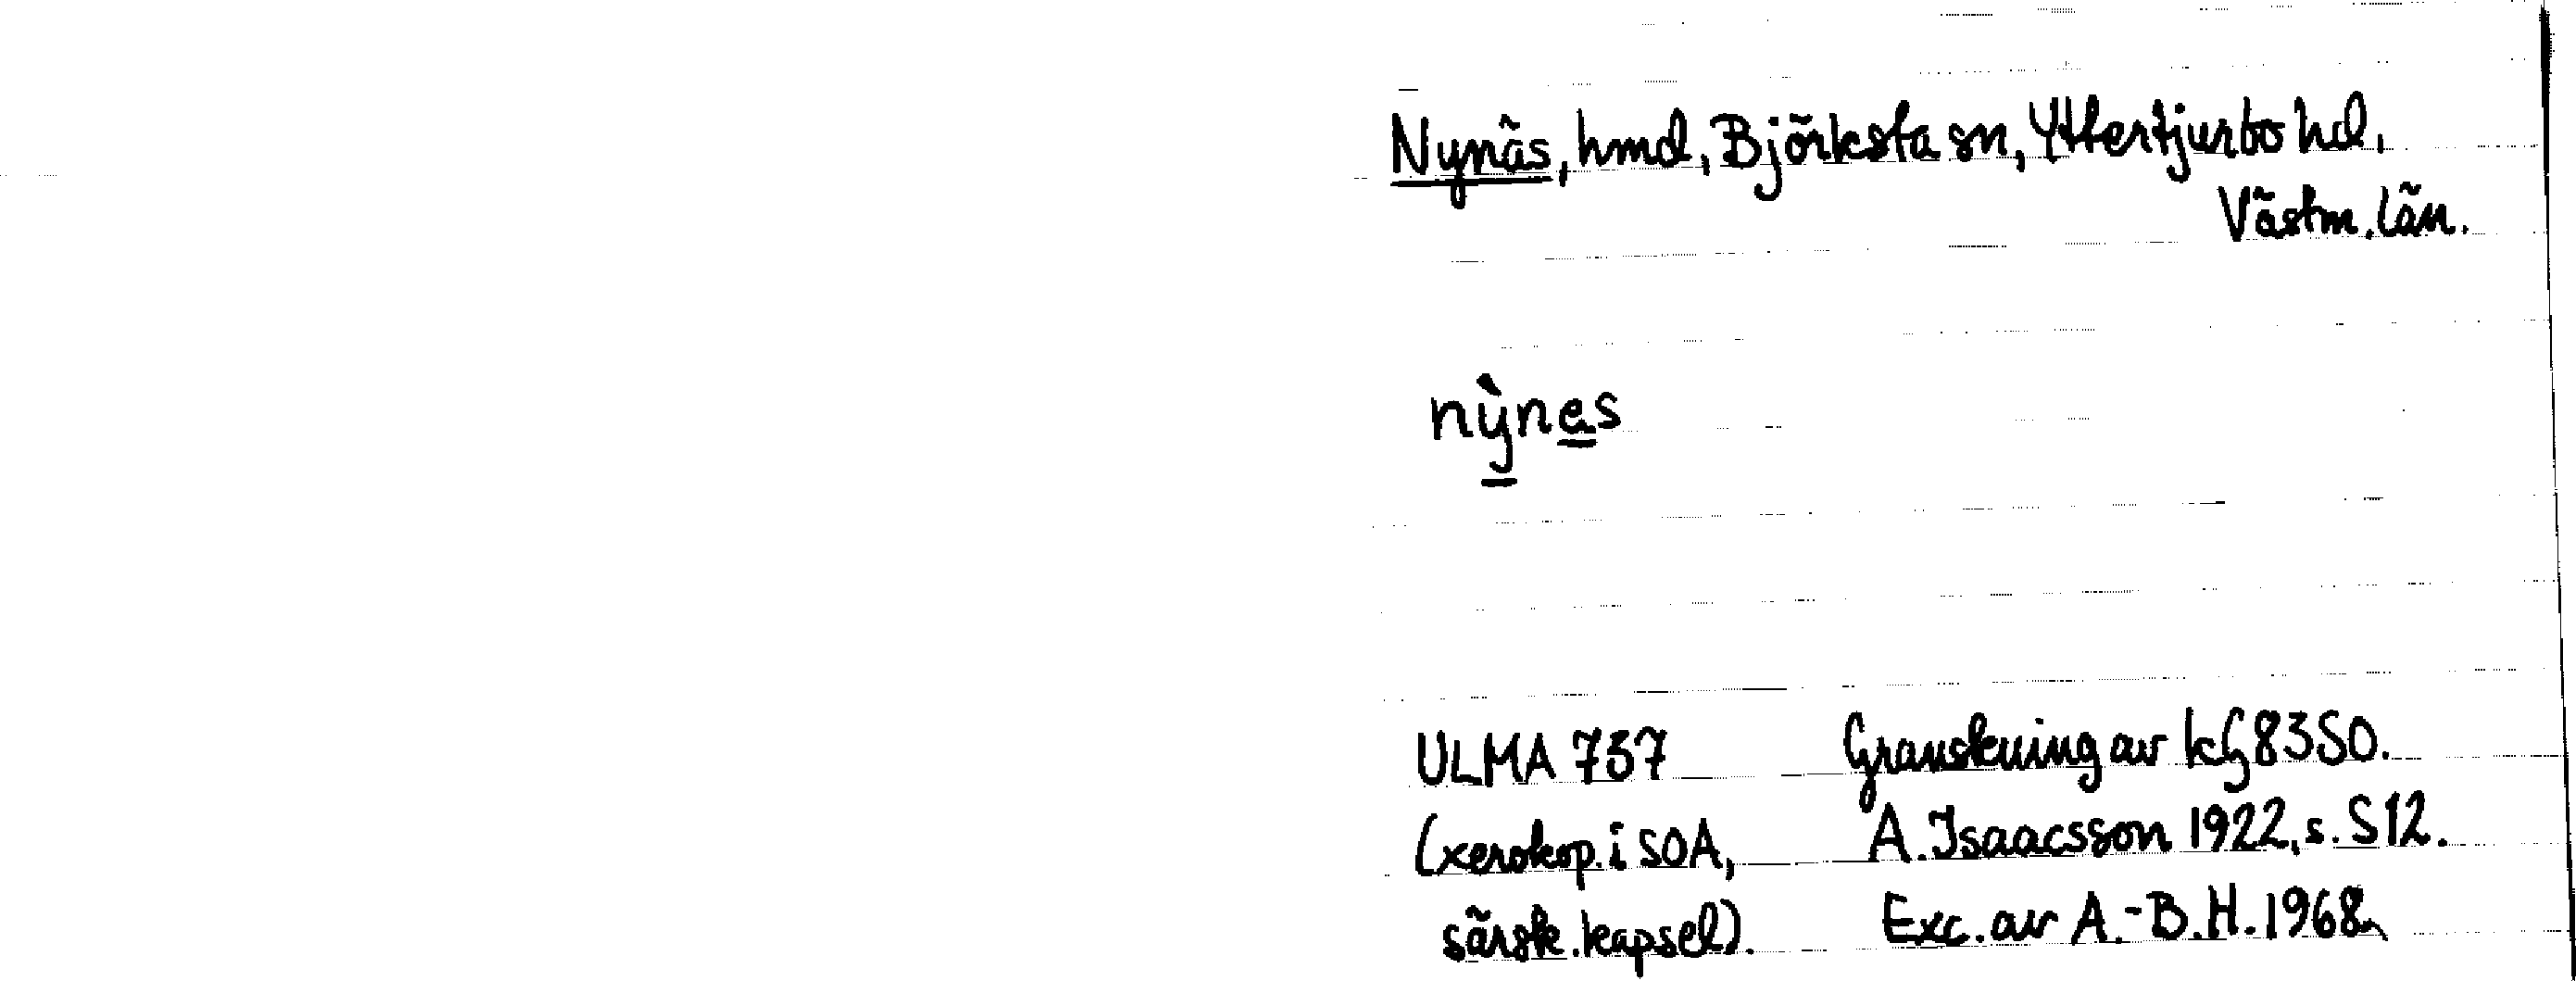 Nynäs, hmd, Björksta sn, Yttertjurbo hd,
Västm. län.
nỳnes
ULMA 737 Granskning av kG 8350.
(xerokop. i SOA, A. Isaacsson 1922, s. S 12.
särsk. kapsel). Exc. av A.-B. H. 1968.